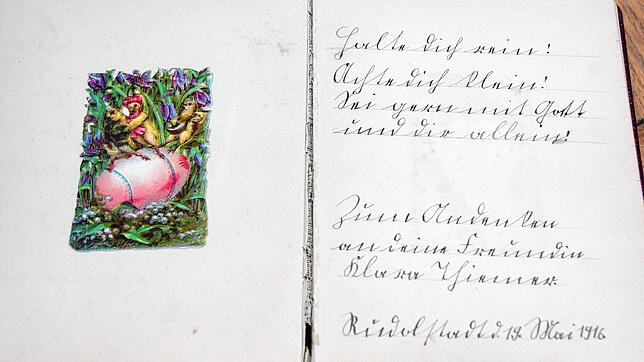 Halte dich rein!
Achte dich klein!
Sei gern mit Gott
und dir allein!
Zum Andenken
an deine Freundin
Klara Thiemer.
Rudolstadt d. 19. Mai 1916